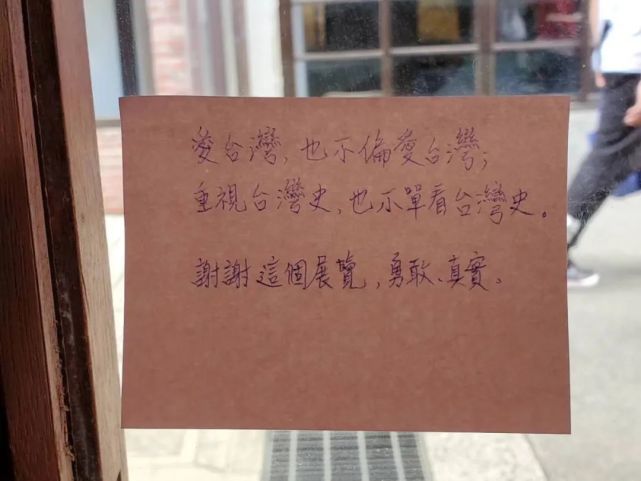 愛台灣，也不偏愛台灣；
重視台灣史，也不單看台灣史。
謝謝這個展覽，勇敢、真實。